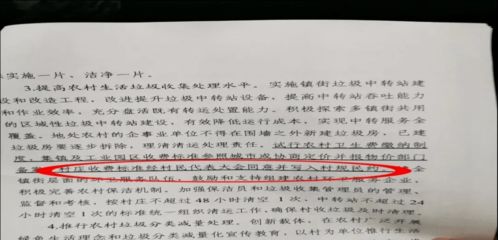 实施一片、洁净一片。
3.提高农村生活垃圾收集处理水平。实施镇街垃圾中转站建
设和改造工程，改进提升垃圾中转站设备，提高中转站吞吐能力
和作业效率，充分盘活既有转运处置能力。积极探索多镇街共用
的区域性垃圾中转站建设，有效降低运行成本，实现中转服务全
覆盖。地处农村的企事业单位不得在围墙之外新建垃圾房，已建
垃圾房要逐步拆除，理清清运处理责任。试行农村卫生费缴纳制
度，集镇及工业园区收费标准参照城市或协商定价并报物价部门
备案，村庄收费标准经村民代表大会同意并写入村规民约。全
镇街层面的环卫服务队伍，鼓励和支持组建农村环卫服务企业，
积极完善农村保洁机制，加强保洁员和垃圾收集管理员的管理、
监督和考核，按村庄不超过48小时清空1次、中转站不超过24
小时清空1次的标准统一组织清运工作，确保村收垃圾及时清理。
4.推行农村垃圾分类减量处理。创新载体，在农村广泛开展
绿色生活理念和垃圾分类减量化宣传教育，以村为单位推行生活